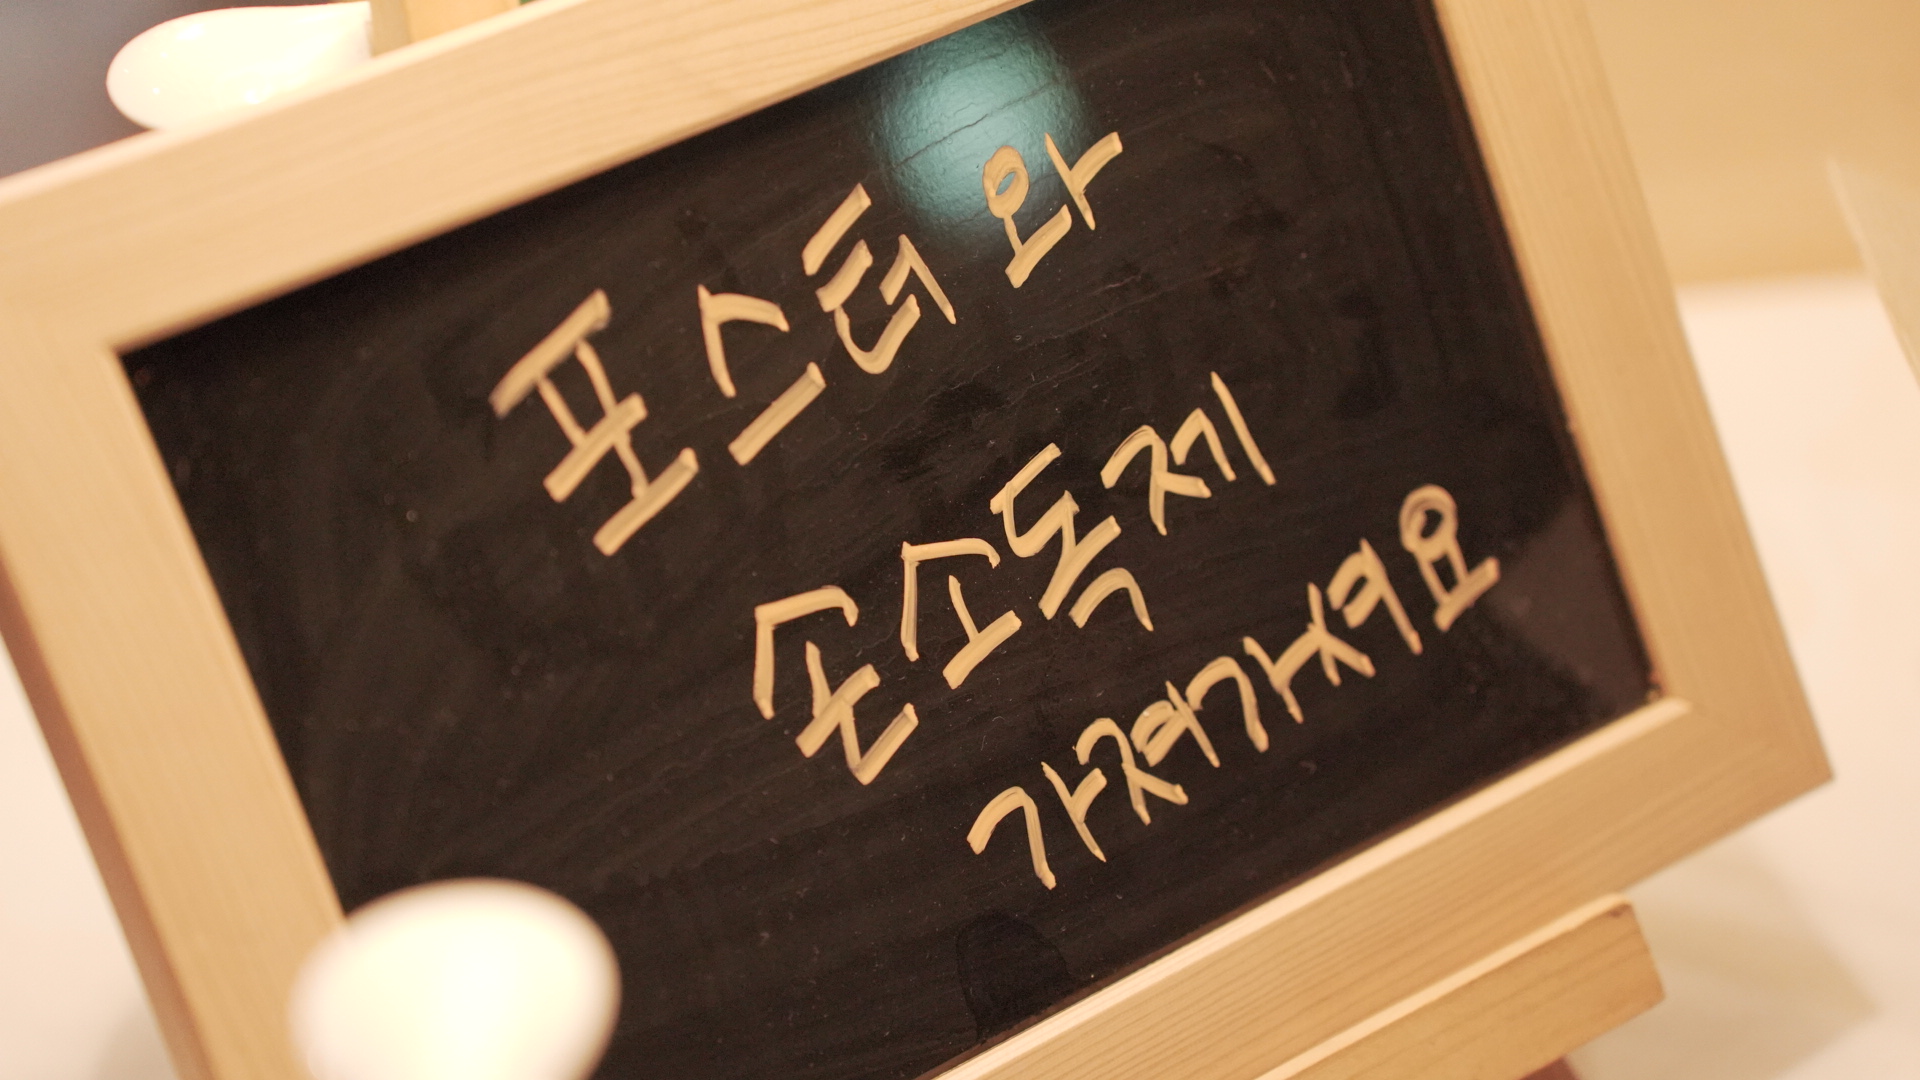 포스터 와
손소독제
가져가셔요